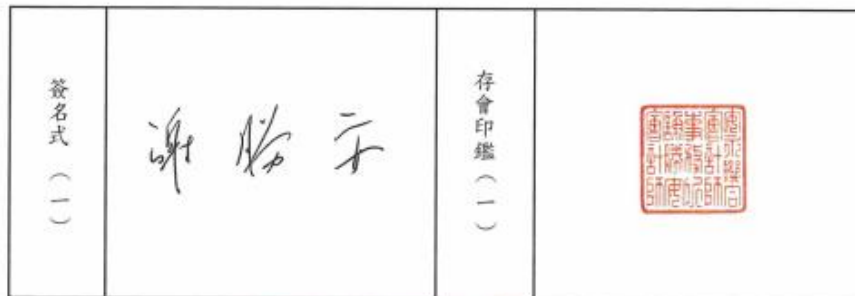 簽名式（一）
謝勝安
存會印鑑（一）